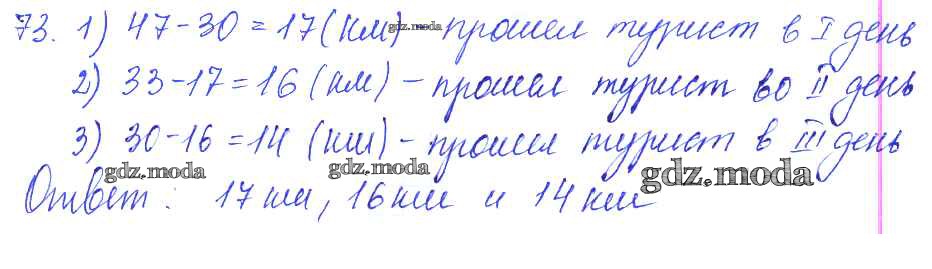 73. 1) 47-30=17(км) - прошел турист в I день
2) 33-17=16 (км) - прошел турист во II день
3) 30-16=14 (км) - прошел турист в III день
Ответ: 17 км, 16 км и 14 км
gdz.moda
gdz.moda
gdz.moda
gdz.moda